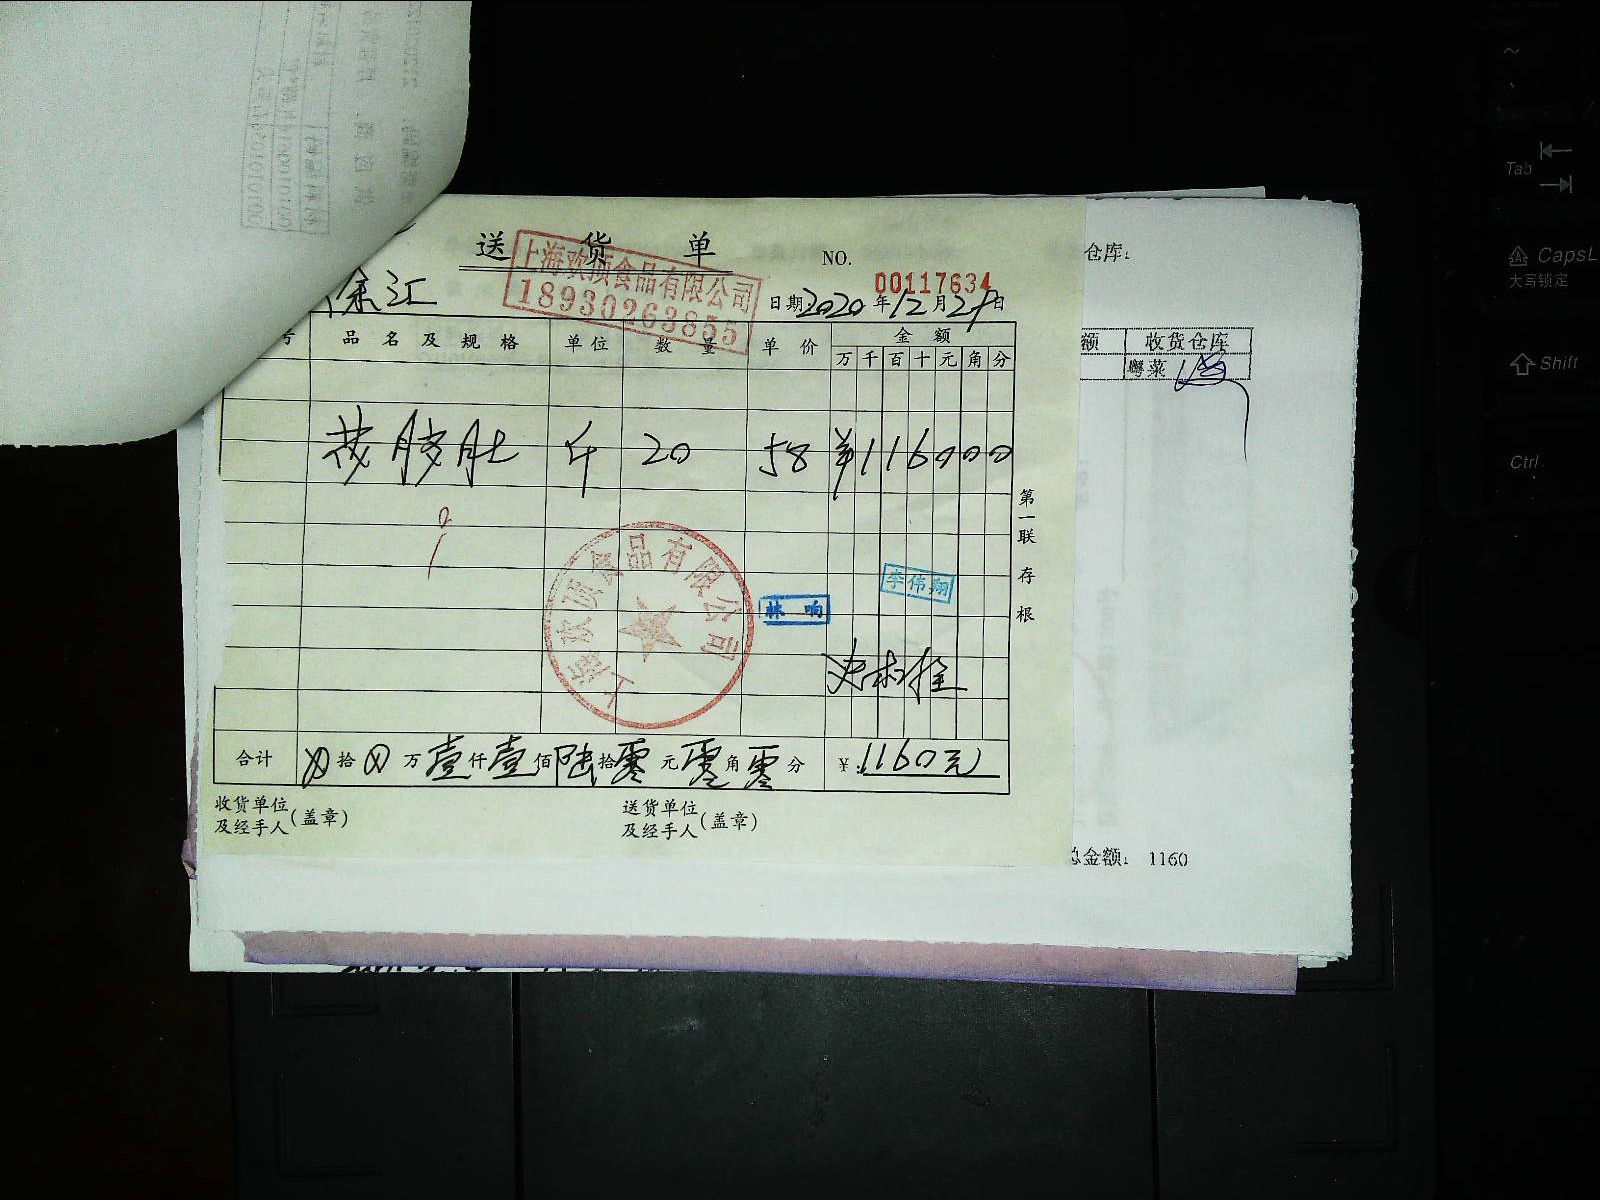 送货单
上海欢顶食品有限公司
18930263855
NO.
00117634
徐汇
日期 2020 年 12 月 29 日
仓库:
号 品名及规格 单位 数量 单价 金额
万 千 百 十 元 角 分
额 收货仓库
粤菜
花胶肚 斤 20 58 ¥116000
第一联 存根
上海欢顶食品有限公司
李伟翔
林响
合计 拾 万 壹 仟 壹 佰 陆 拾 零 元 零 角 零 分 ¥:1160元
收货单位及经手人(盖章)
送货单位及经手人(盖章)
总金额: 1160
~
Tab
CapsL
大写锁定
Shift
Ctrl